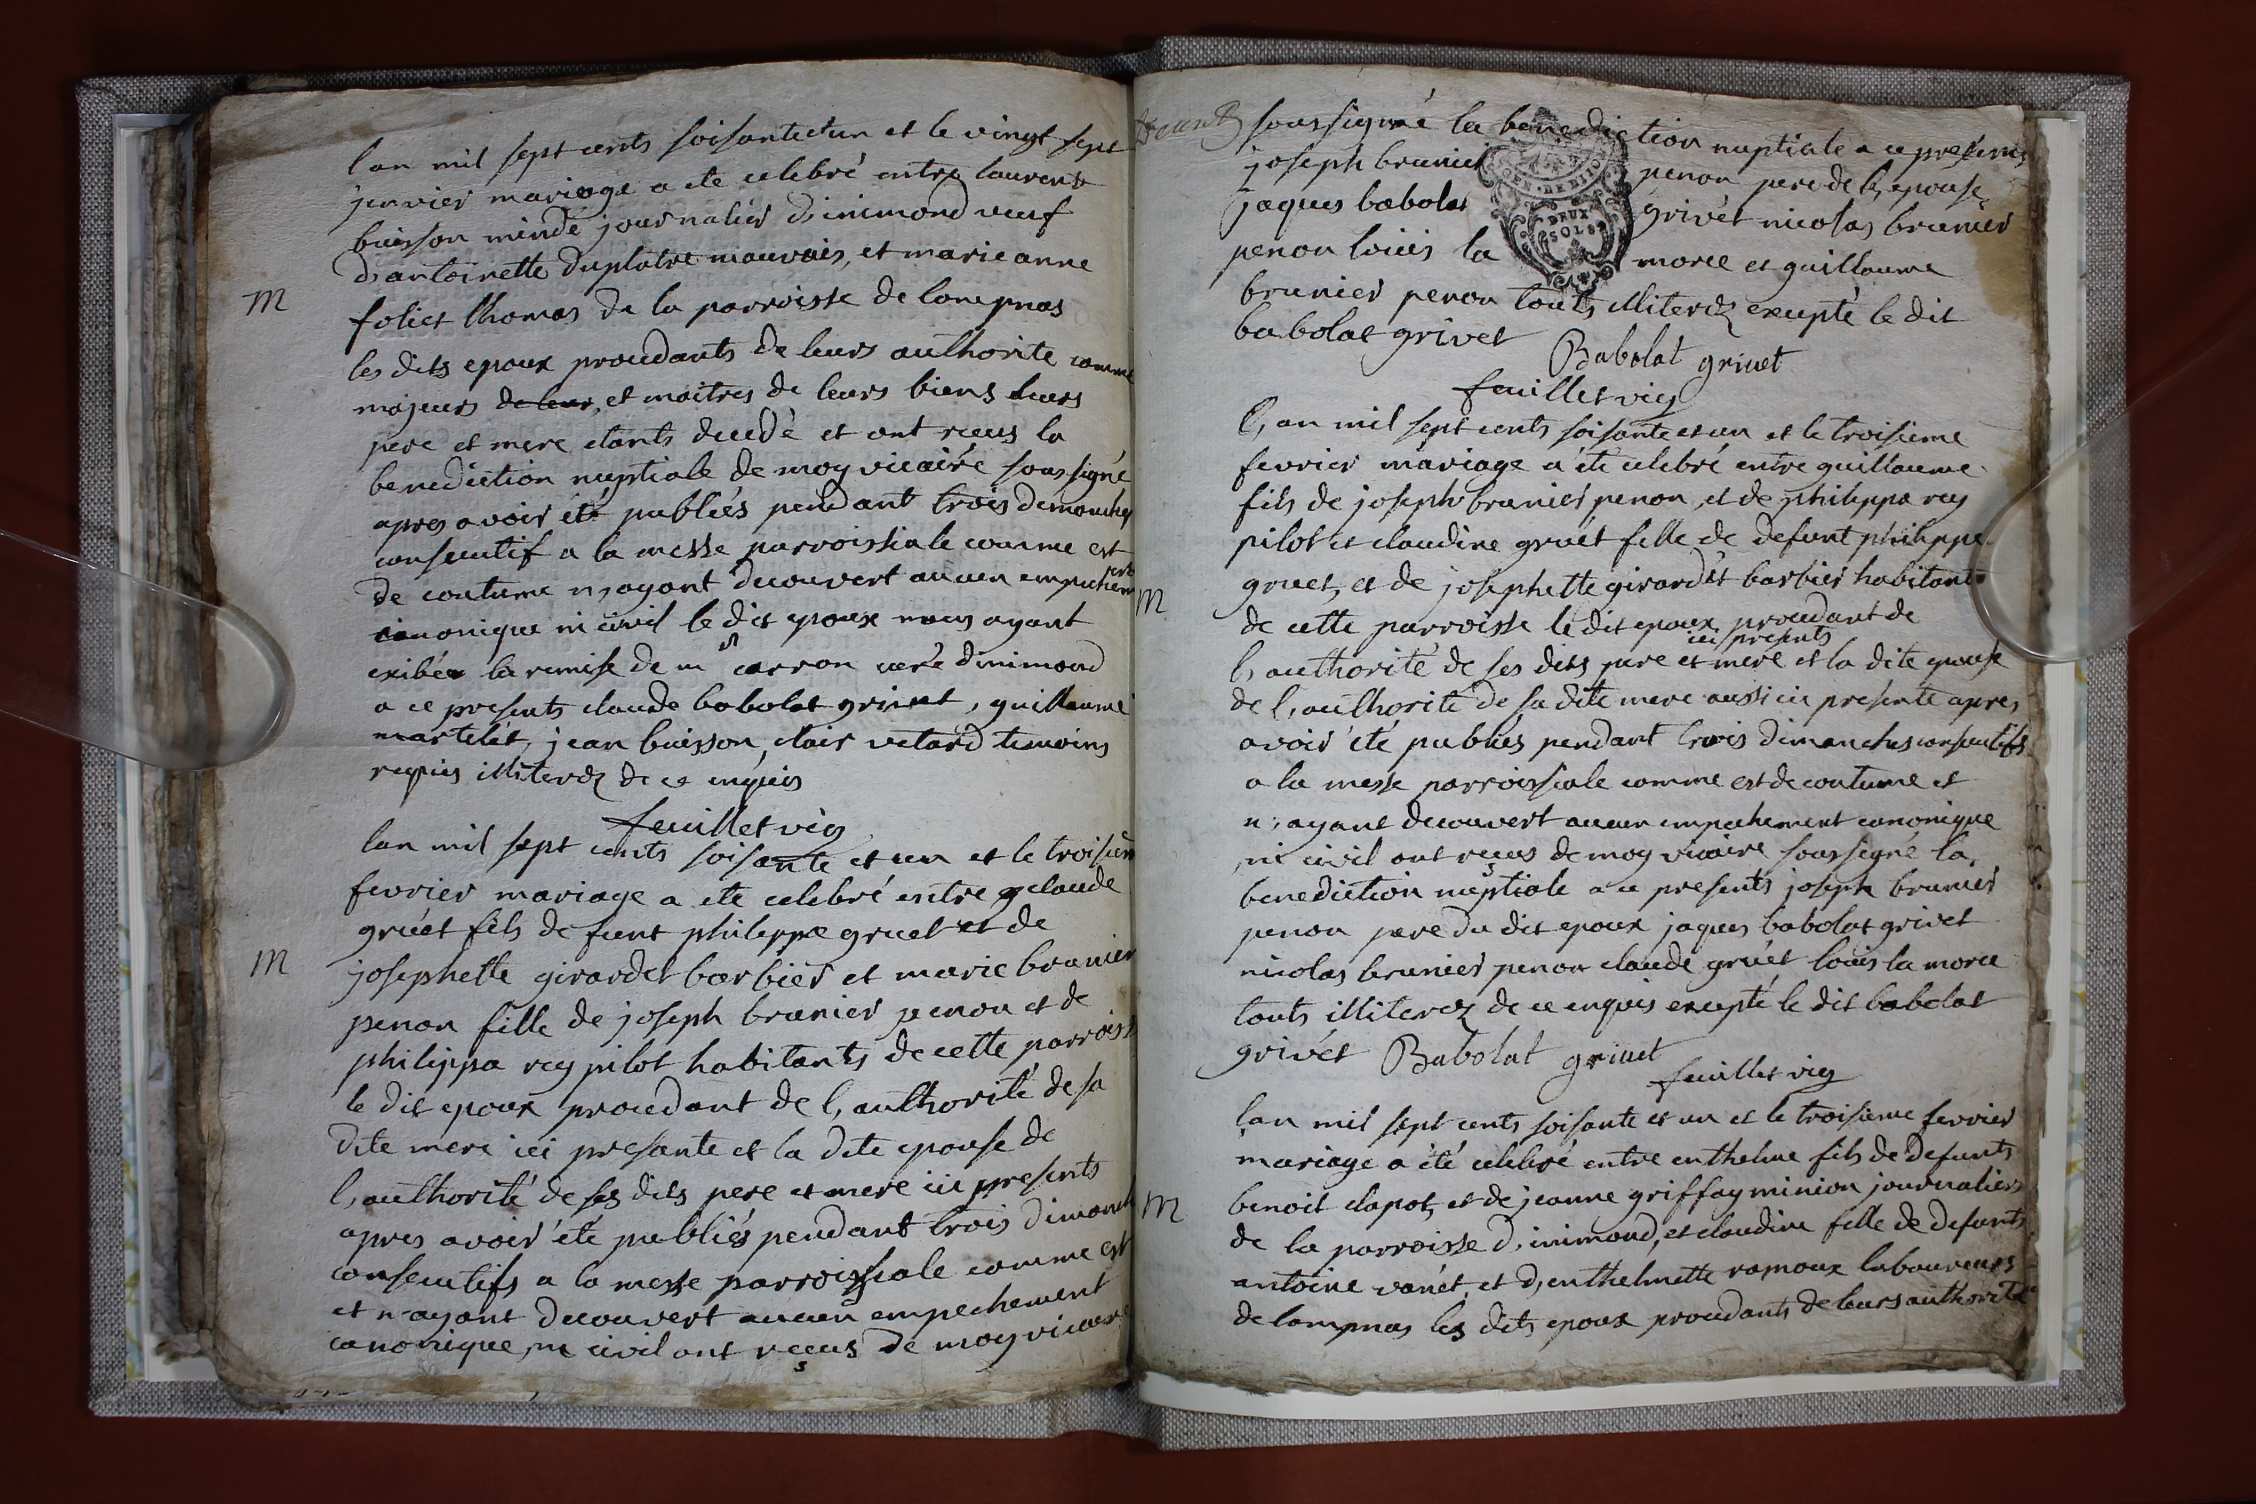 lan mil sept cents soisante et un et le vingt sept
janvier mariage a ete celebré entre laurent
buisson mindé journalier d'inimond veuf
d'antoinette duplatre mauvais, et marie anne
foliet thomas de la parroisse de lompnas
M
les dits epoux procedants de leurs authorite comme
majeurs de leur, et maitres de leurs biens leurs
pere et mere etants decedé et ont recus la
benediction nuptiale de moy vicaire soussigné
apres avoir été publiés pendant trois dimanches
consecutif a la messe parroissiale comme est
de coutume n,ayant decouvert aucun empechem
canonique ni civil le dit epoux nous ayant
exibée la remise de m carron curé dinimond
a ce presents claude babolat grivet, guillaume
martelét, jean buisson, clair vetard temoins
requis illiterez de ce enquis
feuillet vic
lan mil sept cents soisante et un et le troisiem
fevrier mariage a ete celebré entre claude
gruét fils defunt philippe gruet et de
M
josephette girardet barbier et marie brunier
penon fille de joseph brunier penon et de
philippa rey pilot habitants de cette parroiss
le dit epoux procedant de l,authorité de sa
dite mere ici presante et la dite epouse de
l,authorité de ses dits pere et mere ici presents
apres avoir été publiés pendant trois dimanch
consecutifs a la messe parroissiale comme est
et n'ayant decouvert aucun empechement
canonique, ni civil ont reçus de moy vicaire
soussigné la benediction nuptiale a ce presents
joseph brunier penon pere de l, epouse,
jaques babolat grivét nicolas brunier
penon loüis la morce et guillaume
brunier penon touts illiterez excepté le dit
babolat grivet
Babolat grivet
feuillet vic
l, an mil sept cents soisante et un et le troisieme
fevrier mariage a été celebré entre guillaume
fils de joseph brunier penon, et de philippa rey
pilot et claudine gruét fille de defunt philippe
gruet, et de josephette girardét barbier habitants
M
de cette parroisse le dit epoux procedant de
ici presents
l, authorité de ses dits pere et mere et la dite epouse
de l,authorité de sa dite mere aussi ici présente apres
avoir été publiés pendant trois dimanches consecutifs
a la messe parroissiale comme est de coutume et
n, ayant decouvert aucun empechement canonique
ni civil ont reçus de moy vicaire soussigné la
benediction nuptiale a ce presents joseph brunier
penon pere du dit epoux jaques babolat grivet
nicolas brunier penon claude gruét loüis la morce
touts illiterez de ce enquis excepté le dit babolat
grivét Babolat grivet
feuillet vic
lan mil sept cents soisante et un et le troisieme fevrier
mariage a été celebré entre enthelme fils de defunts
benoit clapot, et de jeanne griffay minion journaliers
M
de la parroisse d, inimond, et claudine fille de defunts
antoine vanét, et d,enthelmette ramoux laboureurs
de lompnas les dits epoux procedants de leurs authorité
GEN · DE DIJON
DEUX
SOLS